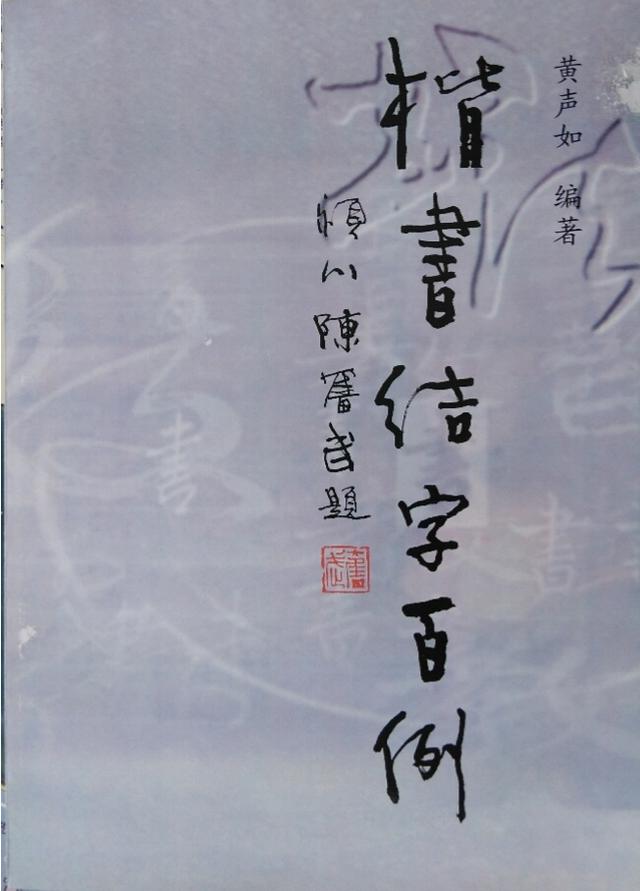 黄声如 编著
楷書结字百例
川陳舊武題